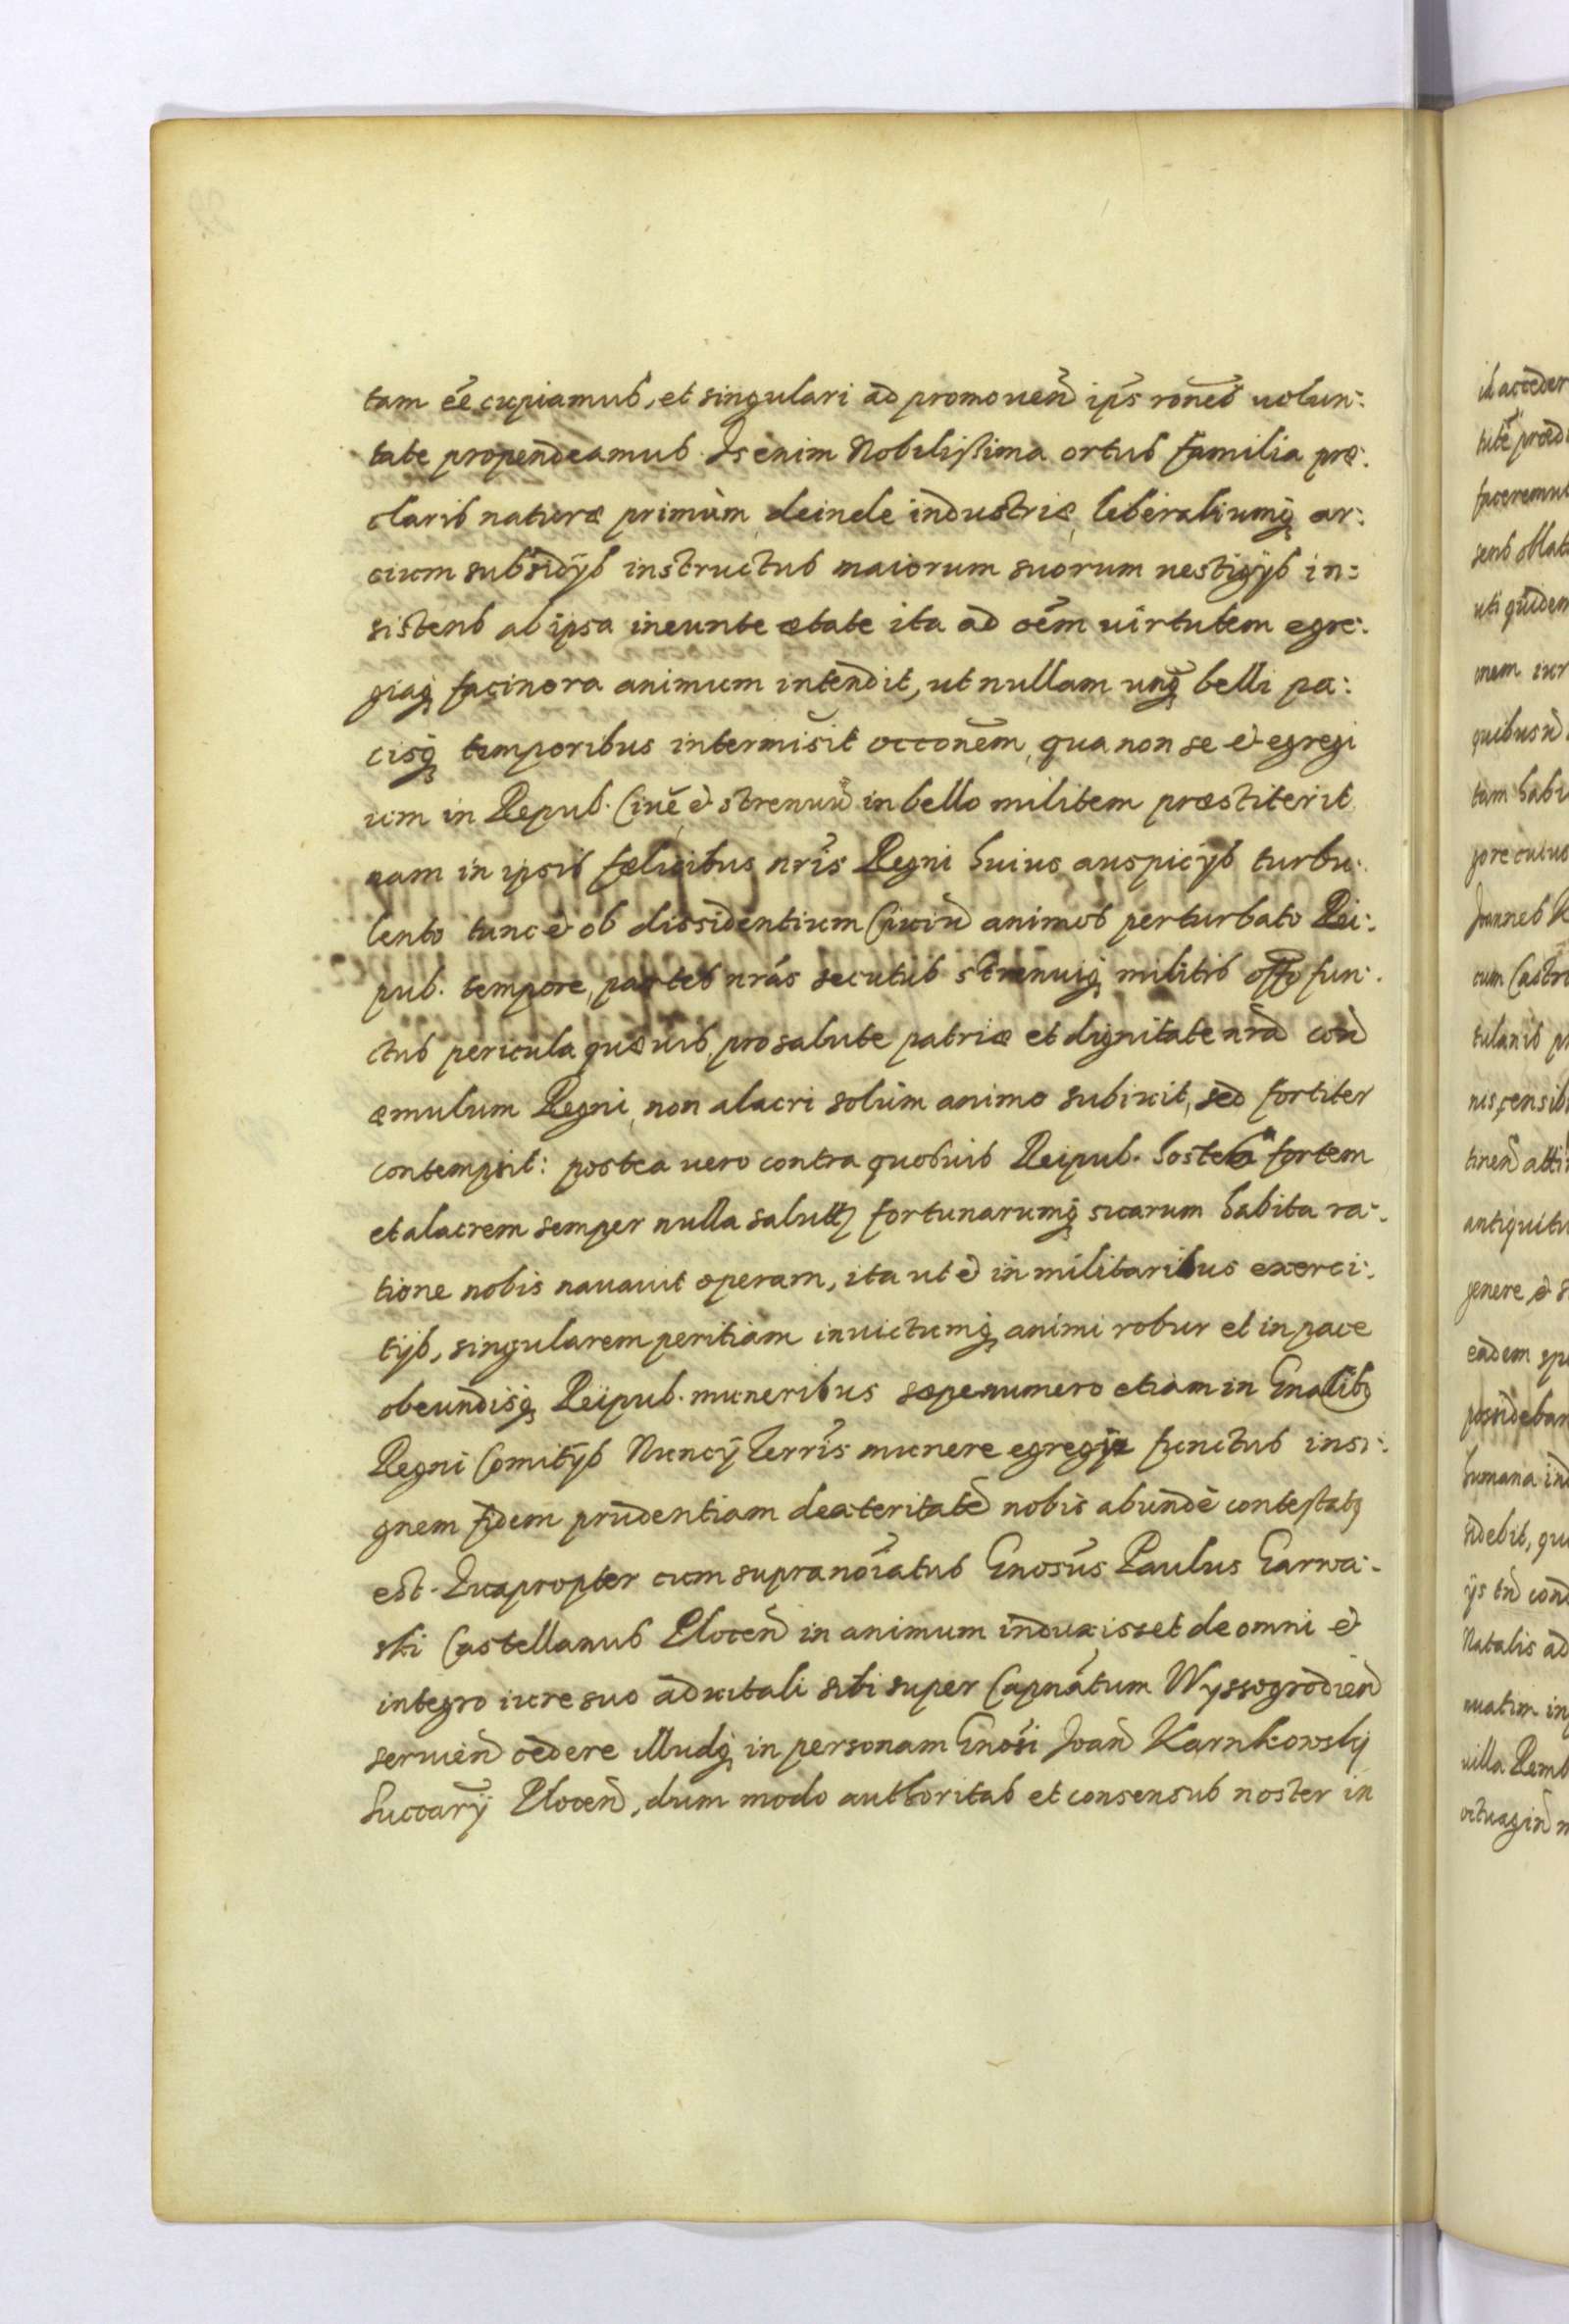 tam eē cupiamus, et singulari ad promouend ipīs rōnes uolun:
tate propendeamus. Is enim Nobilissima ortus familia præ:
claris naturæ primùm, deinde industriæ, liberaliumq̨ ar:
cium subsidÿs instructus maiorum suorum uestigÿs in:
sistens ab ipsa ineunte ætate ita ad oēm uirtutem egre:
giaq̨ facinora animum intendit, ut nullam unq̨ belli pa:
cisq̨ temporibus intermisit occōnem, qua non se & egregi
um in Repub. Ciuē, & strenuū in bello militem præstiterit
nam in ipsis felicibus nrīs Regni huius auspicÿs turbu:
lento tunc & ob dissidentium Ciuiū animos perturbato Rei:
pub. tempore, partes nrās secutus strenuiq̨ militis offo fun:
ctus pericula quæuis, pro salute patriæ et dignitate nrā con
æmulum Regni, non alacri solùm animo subiuit, sed fortiter
contempsit: postea uero contra quosuis Reipub. hostes fortem
et alacrem semper nulla salutis fortunarumq̨ suarum habita ra:
tione nobis nauauit operam, ita ut & in militaribus exerci:
tÿs, singularem peritiam inuictumq̨ animi robur et in pace
obeundisq̨ Reipub. muneribus sæpenumero etiam in Gnalibȝ
Regni Comitÿs Nuncÿ Terrīs munere egregie functus insi:
gnem fidem prudentiam dexteritatē nobis abundè contestatȝ
est. Quapropter cum supranōiatus Gnosūs Paulus Garwa:
ski Castellanus Plocen in animum induxisset de omni &
integro iure suo aduitali sibi super Capnātum Wyssogrodien
seruien cedere illudq̨ in personam Gnosī Joan Karnkowskÿ
Succarÿ Plocen, dum modo authoritas et consensus noster in